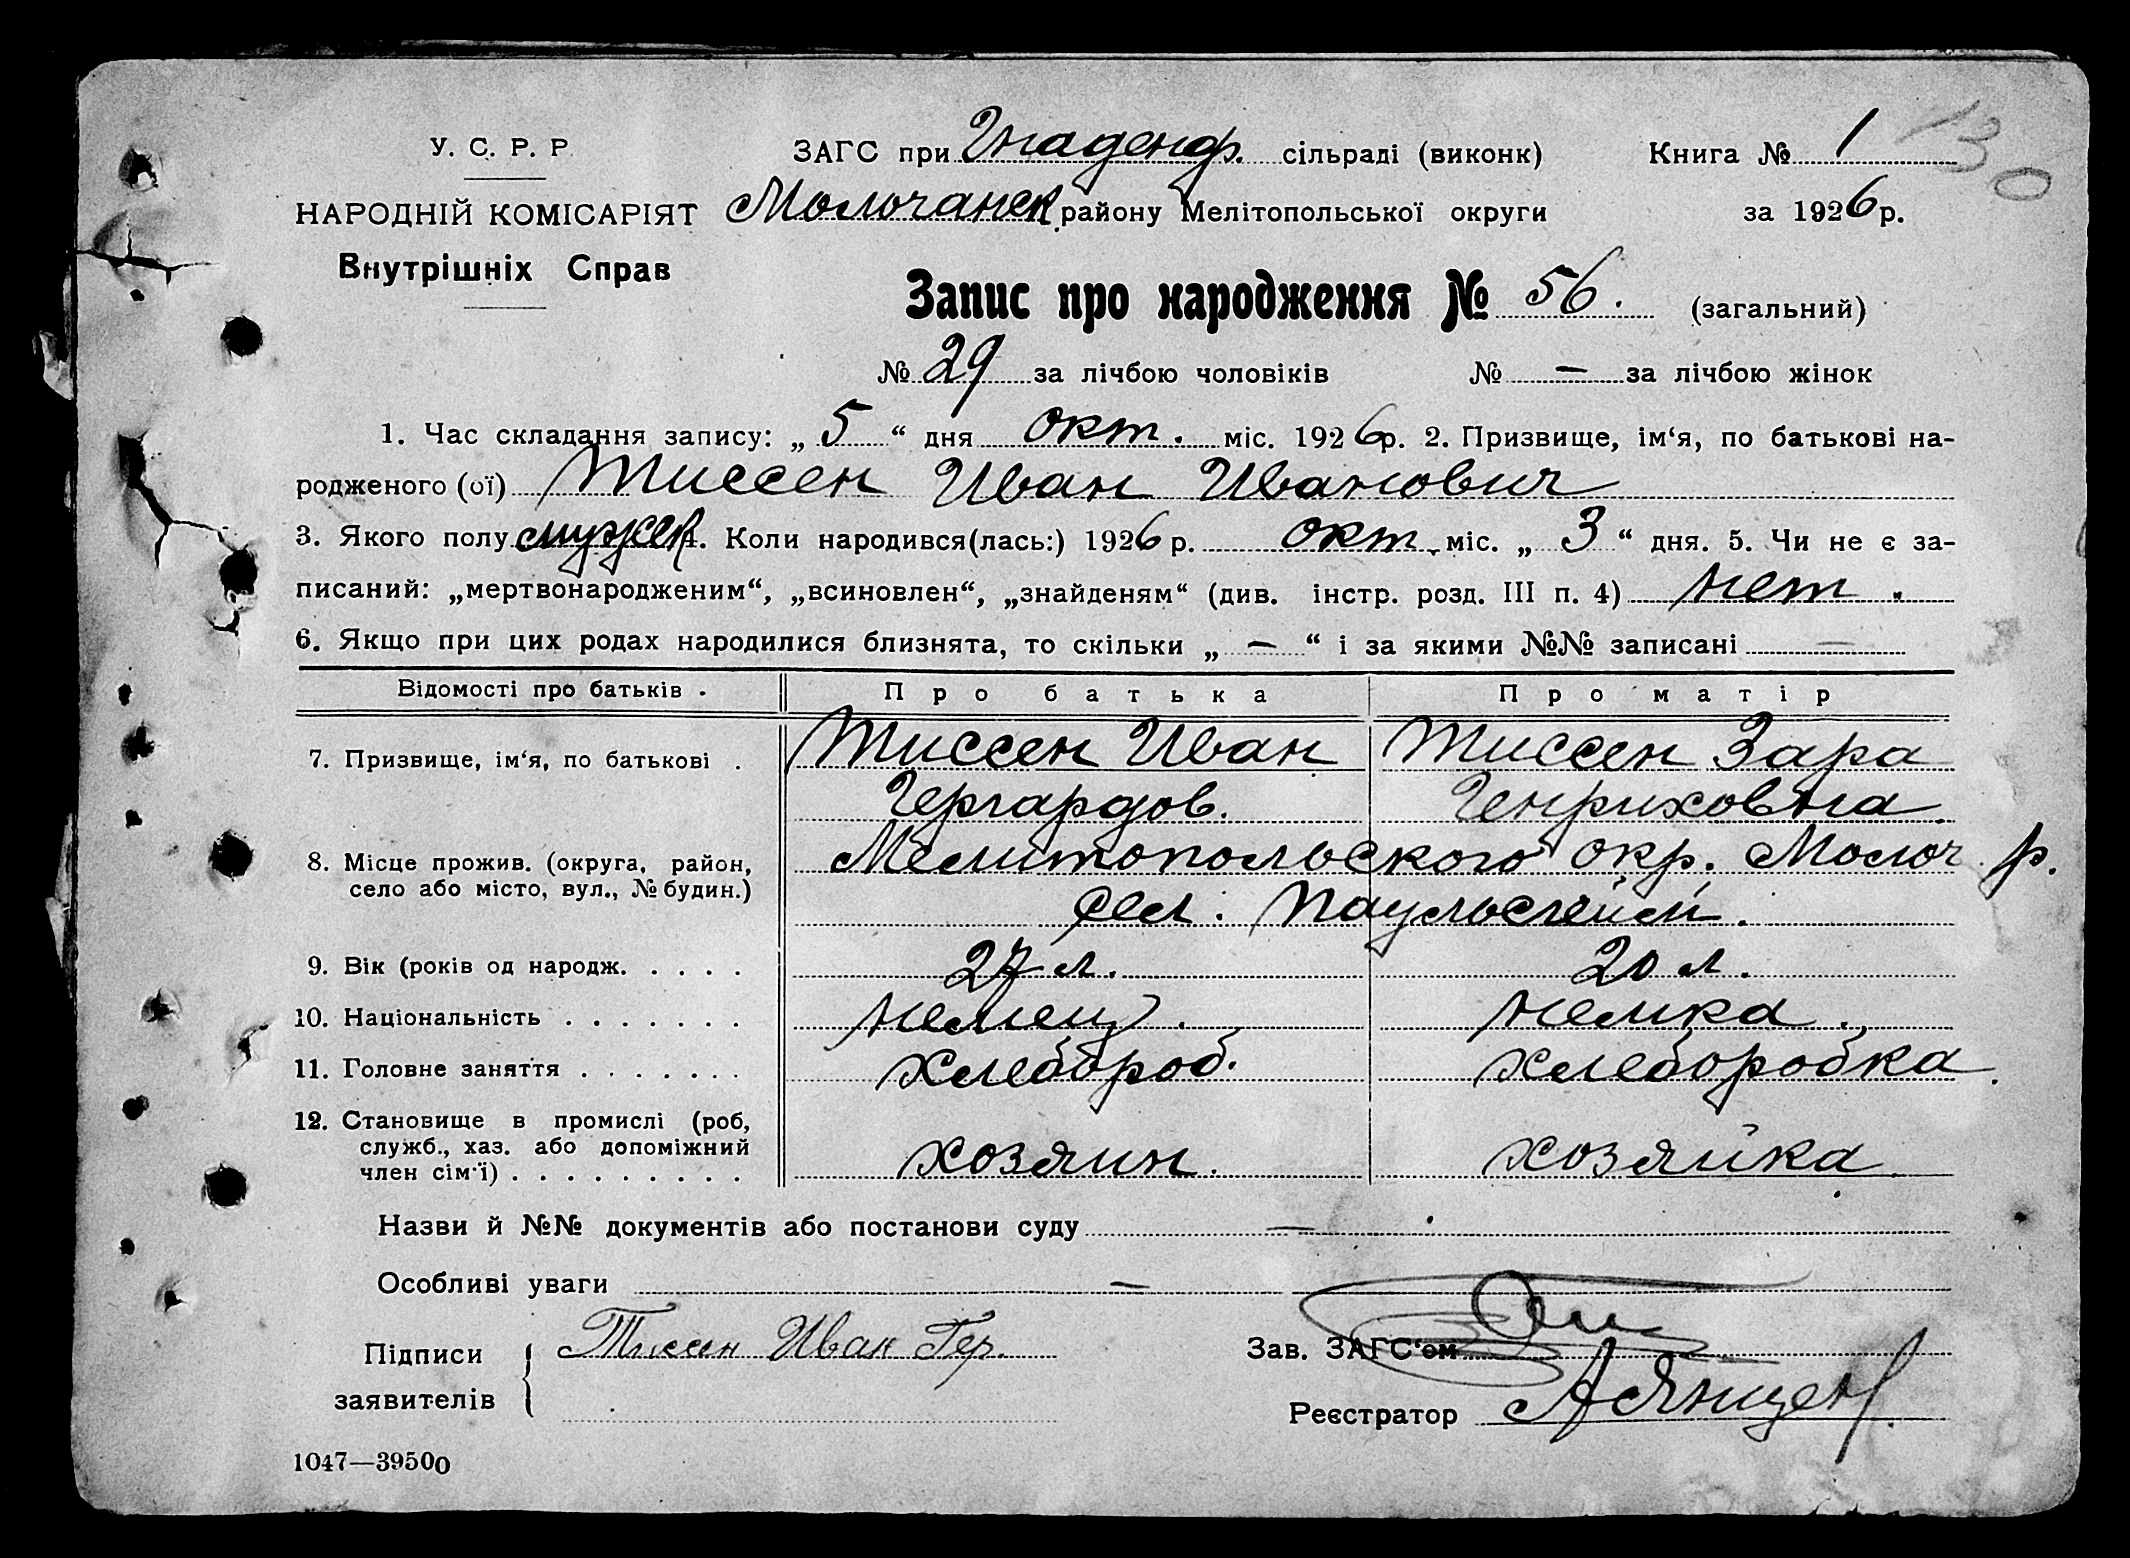 У. С. Р. Р.
НАРОДНІЙ КОМІСАРІЯТ
Внутрішніх Справ
ЗАГС при Гнаденф. сільраді (виконк)
Молочанск. району Мелітопольської округи
Книга № 1
130
за 1926 р.
Запис про народження № 56. (загальний)
№ 29 за лічбою чоловіків № — за лічбою жінок
1. Час складання запису: „ 5 “ дня окт. міс. 1926 р. 2. Призвище, ім‘я, по батькові на-
родженого (ої) Тиссен Иван Иванович
3. Якого полу мужск. 4. Коли народився(лась:) 1926 р. окт. міс. „ 3 “ дня. 5. Чи не є за-
писаний: „мертвонародженим“, „всиновлен“, „знайденям“ (див. інстр. розд. III п. 4) нет.
6. Якщо при цих родах народилися близнята, то скільки „ — “ і за якими №№ записані —
Відомості про батьків . Про батька Про матір
7. Призвище, ім‘я, по батькові . Тиссен Иван Тиссен Зара
Гергардов. Генриховна.
8. Місце прожив. (округа, район, село або місто, вул., № будин.) Мелитопольского окр. Молоч. р.
сел. Паульсгейм.
9. Вік (років од народж. . . . . 27 л. 20 л.
10. Національність . . . . . . . немец. немка.
11. Головне заняття . . . . . . . хлебороб. хлеборобка.
12. Становище в промислі (роб,
служб., хаз. або допоміжний
член сім‘ї) . . . . . . . . . хозяин. хозяйка.
Назви й №№ документів або постанови суду —
Особливі уваги —
Підписи заявителів Тиссен Иван Гер.
Зав. ЗАГС‘ом
Реєстратор
1047—39500